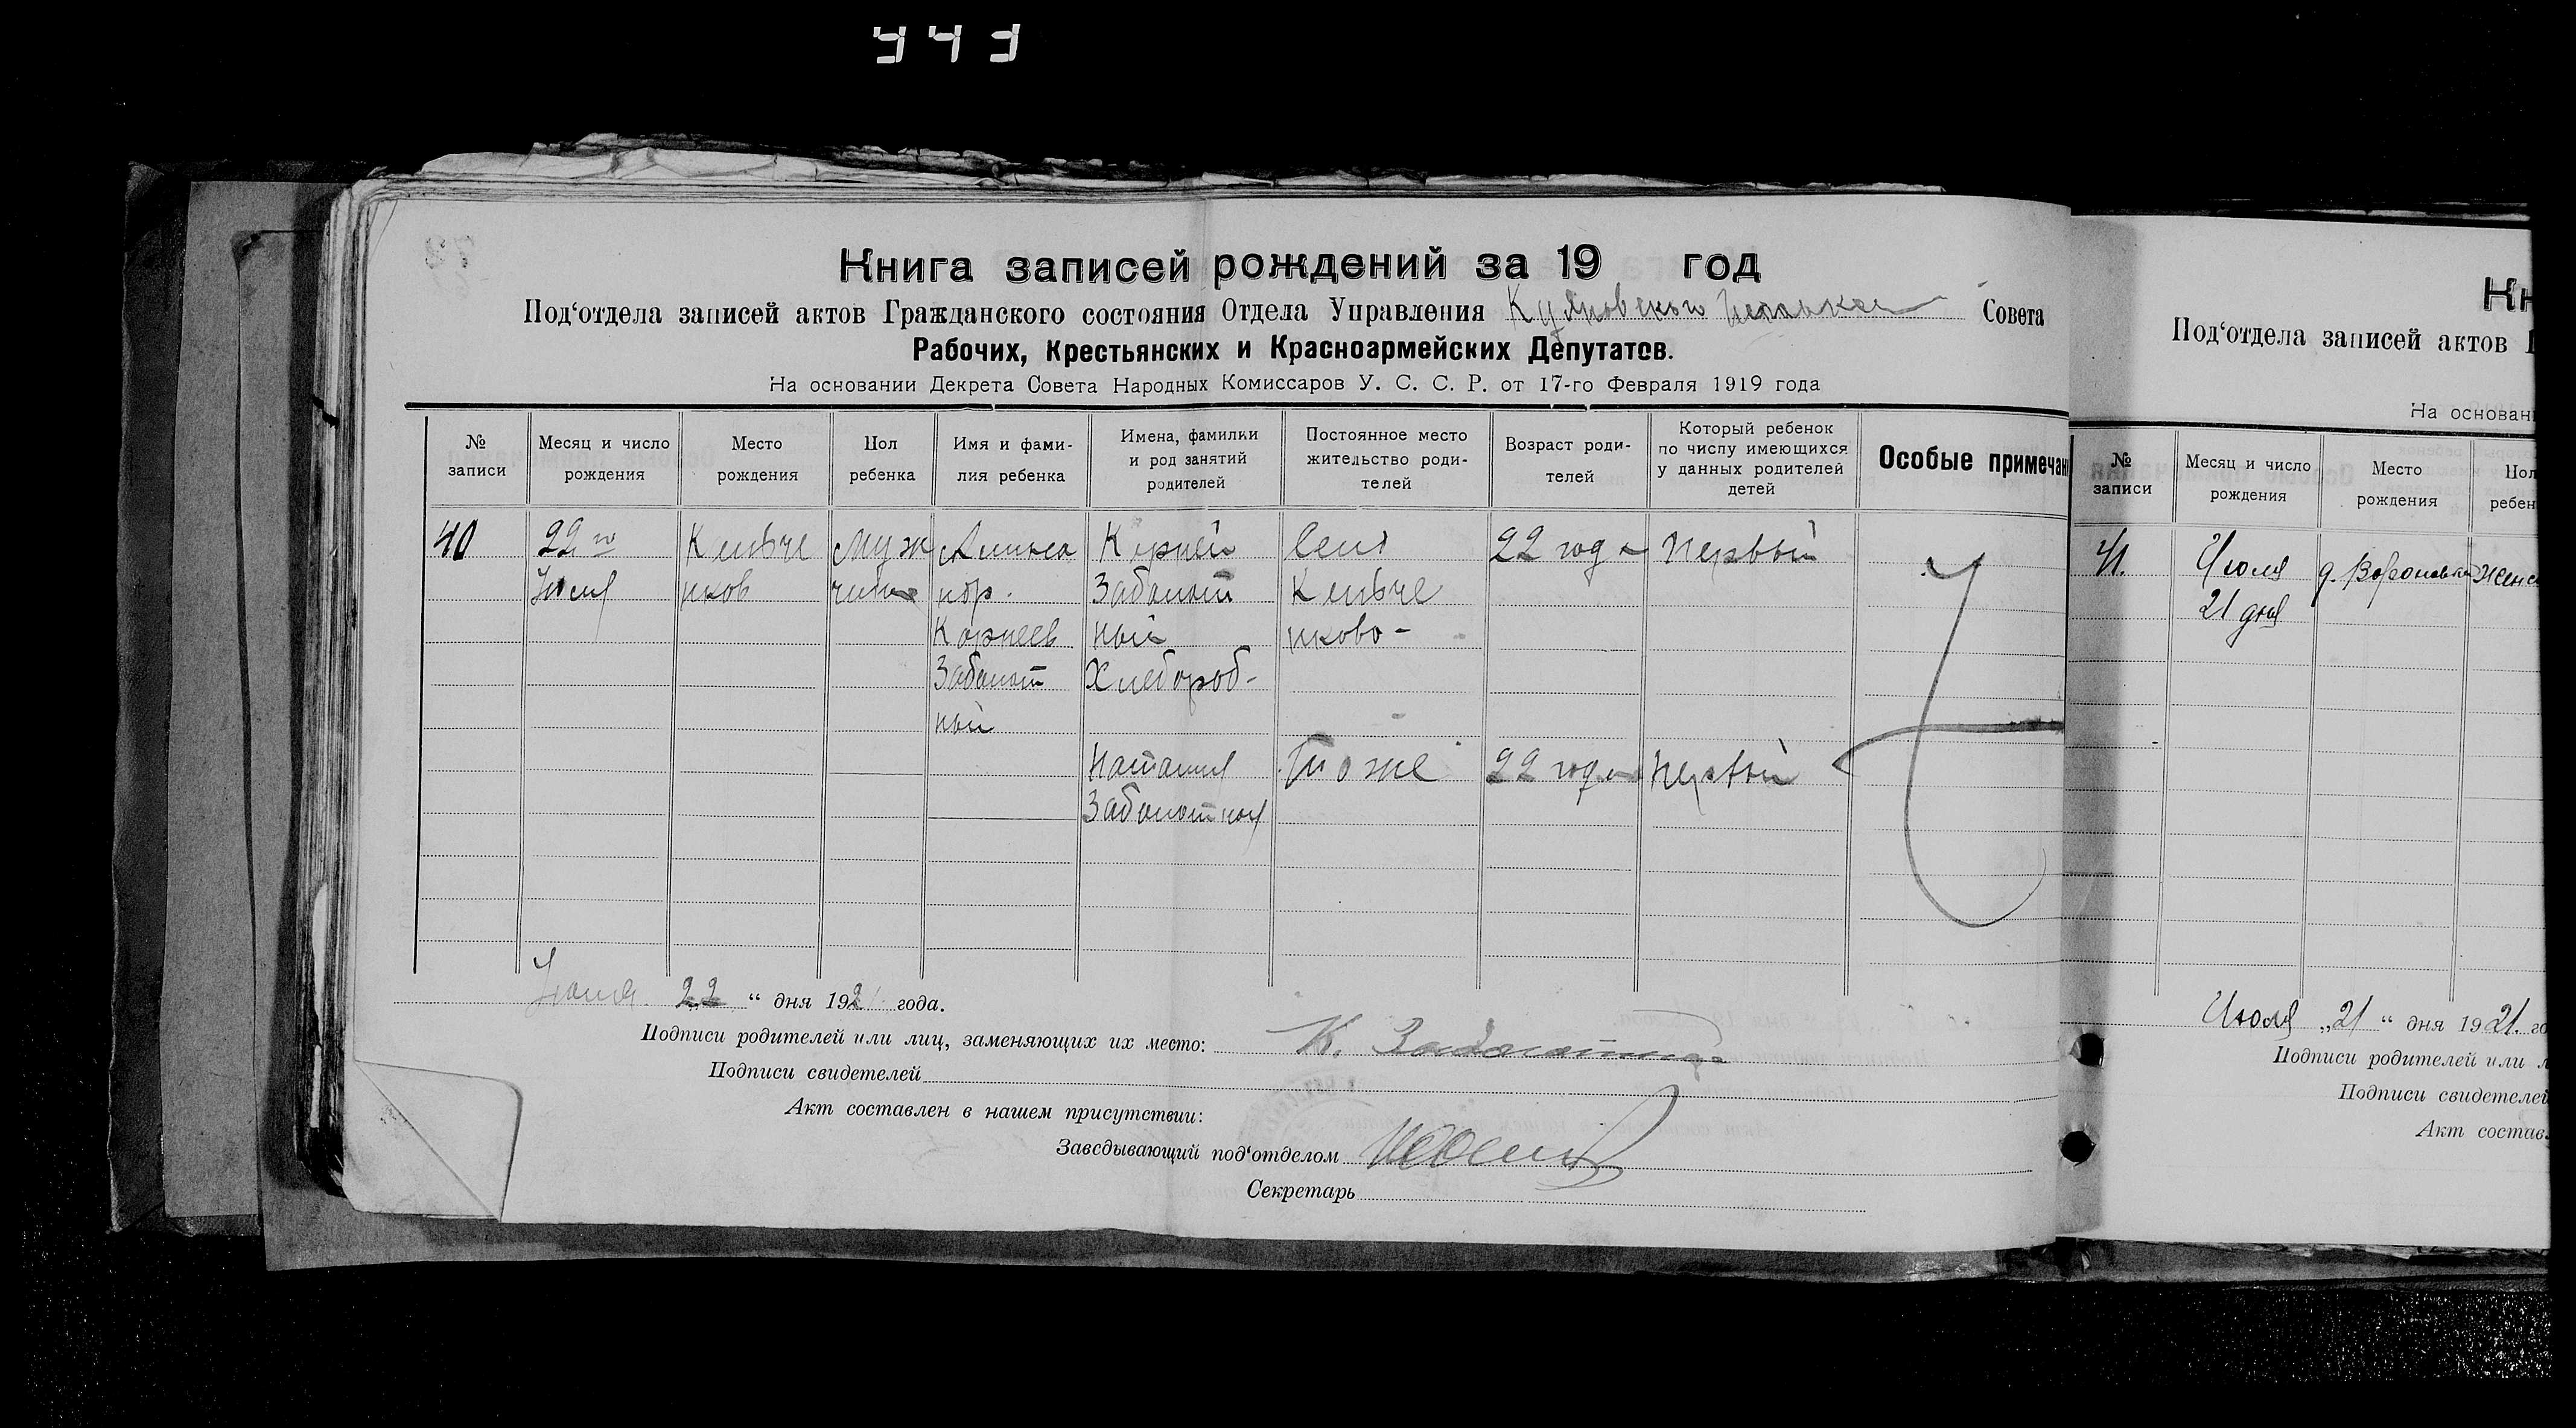 Книга записей рождений за 19 год
Под‘отдела записей актов Гражданского состояния Отдела Управления Совета
Рабочих, Крестьянских и Красноармейских Депутатов.
На основании Декрета Совета Народных Комиссаров У. С. С. Р. от 17-го Февраля 1919 года
№ записи
Месяц и число рождения
Место рождения
Пол ребенка
Имя и фами-
лия ребенка
Имена, фамилки
и род занятий
родителей
Постоянное место
жительство роди-
телей
Возраст роди-
телей
Который ребенок
по числу имеющихся
у данных родителей
детей
Особые примечан
40 22 го Муж Корней Село 22 года Первый
чина Заболот
Корнеев ной
Заболот Хлебороб-
ной
Наталия Тоже 22 года Первый
Заболотная
22 “ дня 1921 года.
Подписи родителей или лиц, заменяющих их место: К.
Подписи свидетелей
Акт составлен в нашем присутствии:
Заведывающий под‘отделом
Секретарь
Кн
Под‘отдела записей актов Г
На основани
№ записи
Месяц и число рождения
Место рождения
Пол
ребен
41. Июля д.
21 дня
Июля „21“ дня 1921. го
Подписи родителей или л
Подписи свидетелей
Акт состав